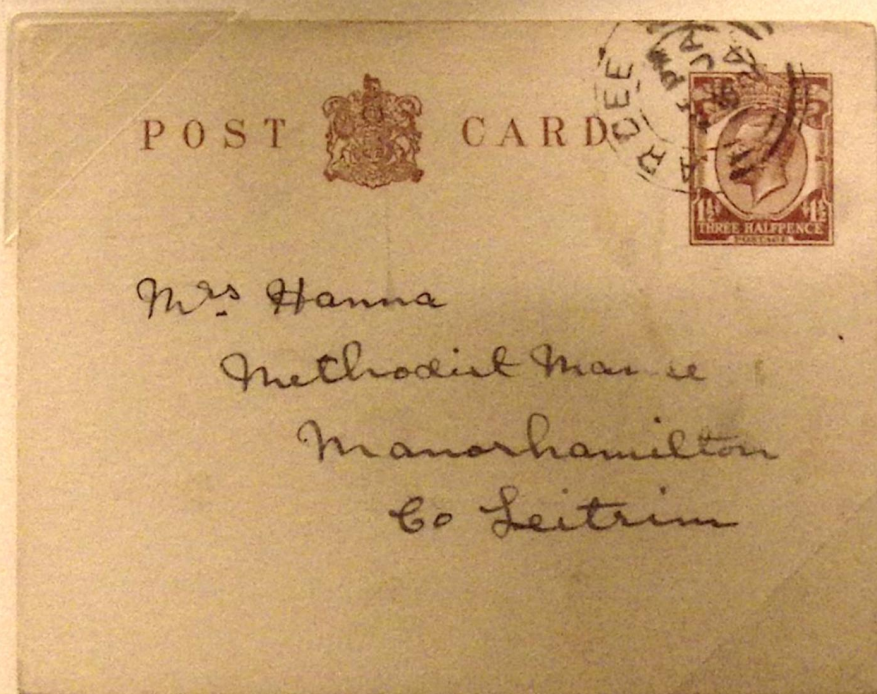 POST CARD
ARDEE
PM
JA
1½ 1½
THREE HALFPENCE
POSTAGE
Mrs Hanna
Methodist Manse
Manorhamilton
Co Leitrim